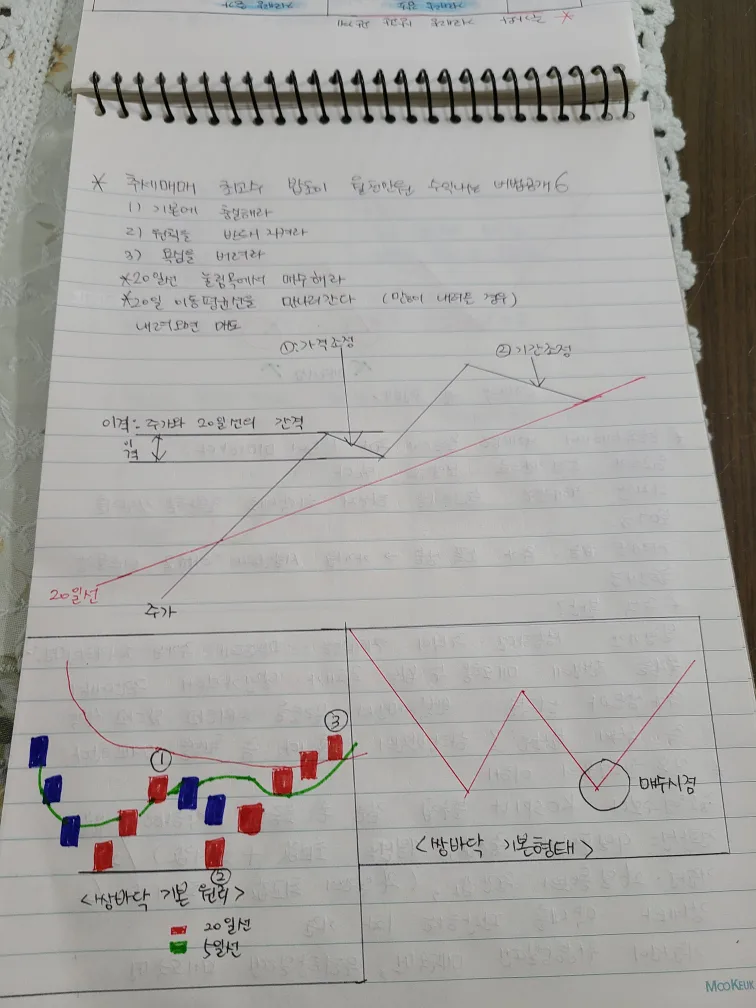 * 추세매매 최고수 월천만원 수익나는 비법공개 6
1) 기본에 충실해라
2) 원칙을 반드시 지켜라
3) 욕심을 버려라
*20일선 눌림목에서 매수해라
*20일 이동평균선을 만나러간다 (많이 내려든 경우)
내려오면 매도
①:가격조정
②기간조정
이격: 주가와 20일선의 간격
이격
20일선
주가
①
③
②
<쌍바닥 기본 원리>
20일선
5일선
매수시점
<쌍바닥 기본형태>
MOOKEUK